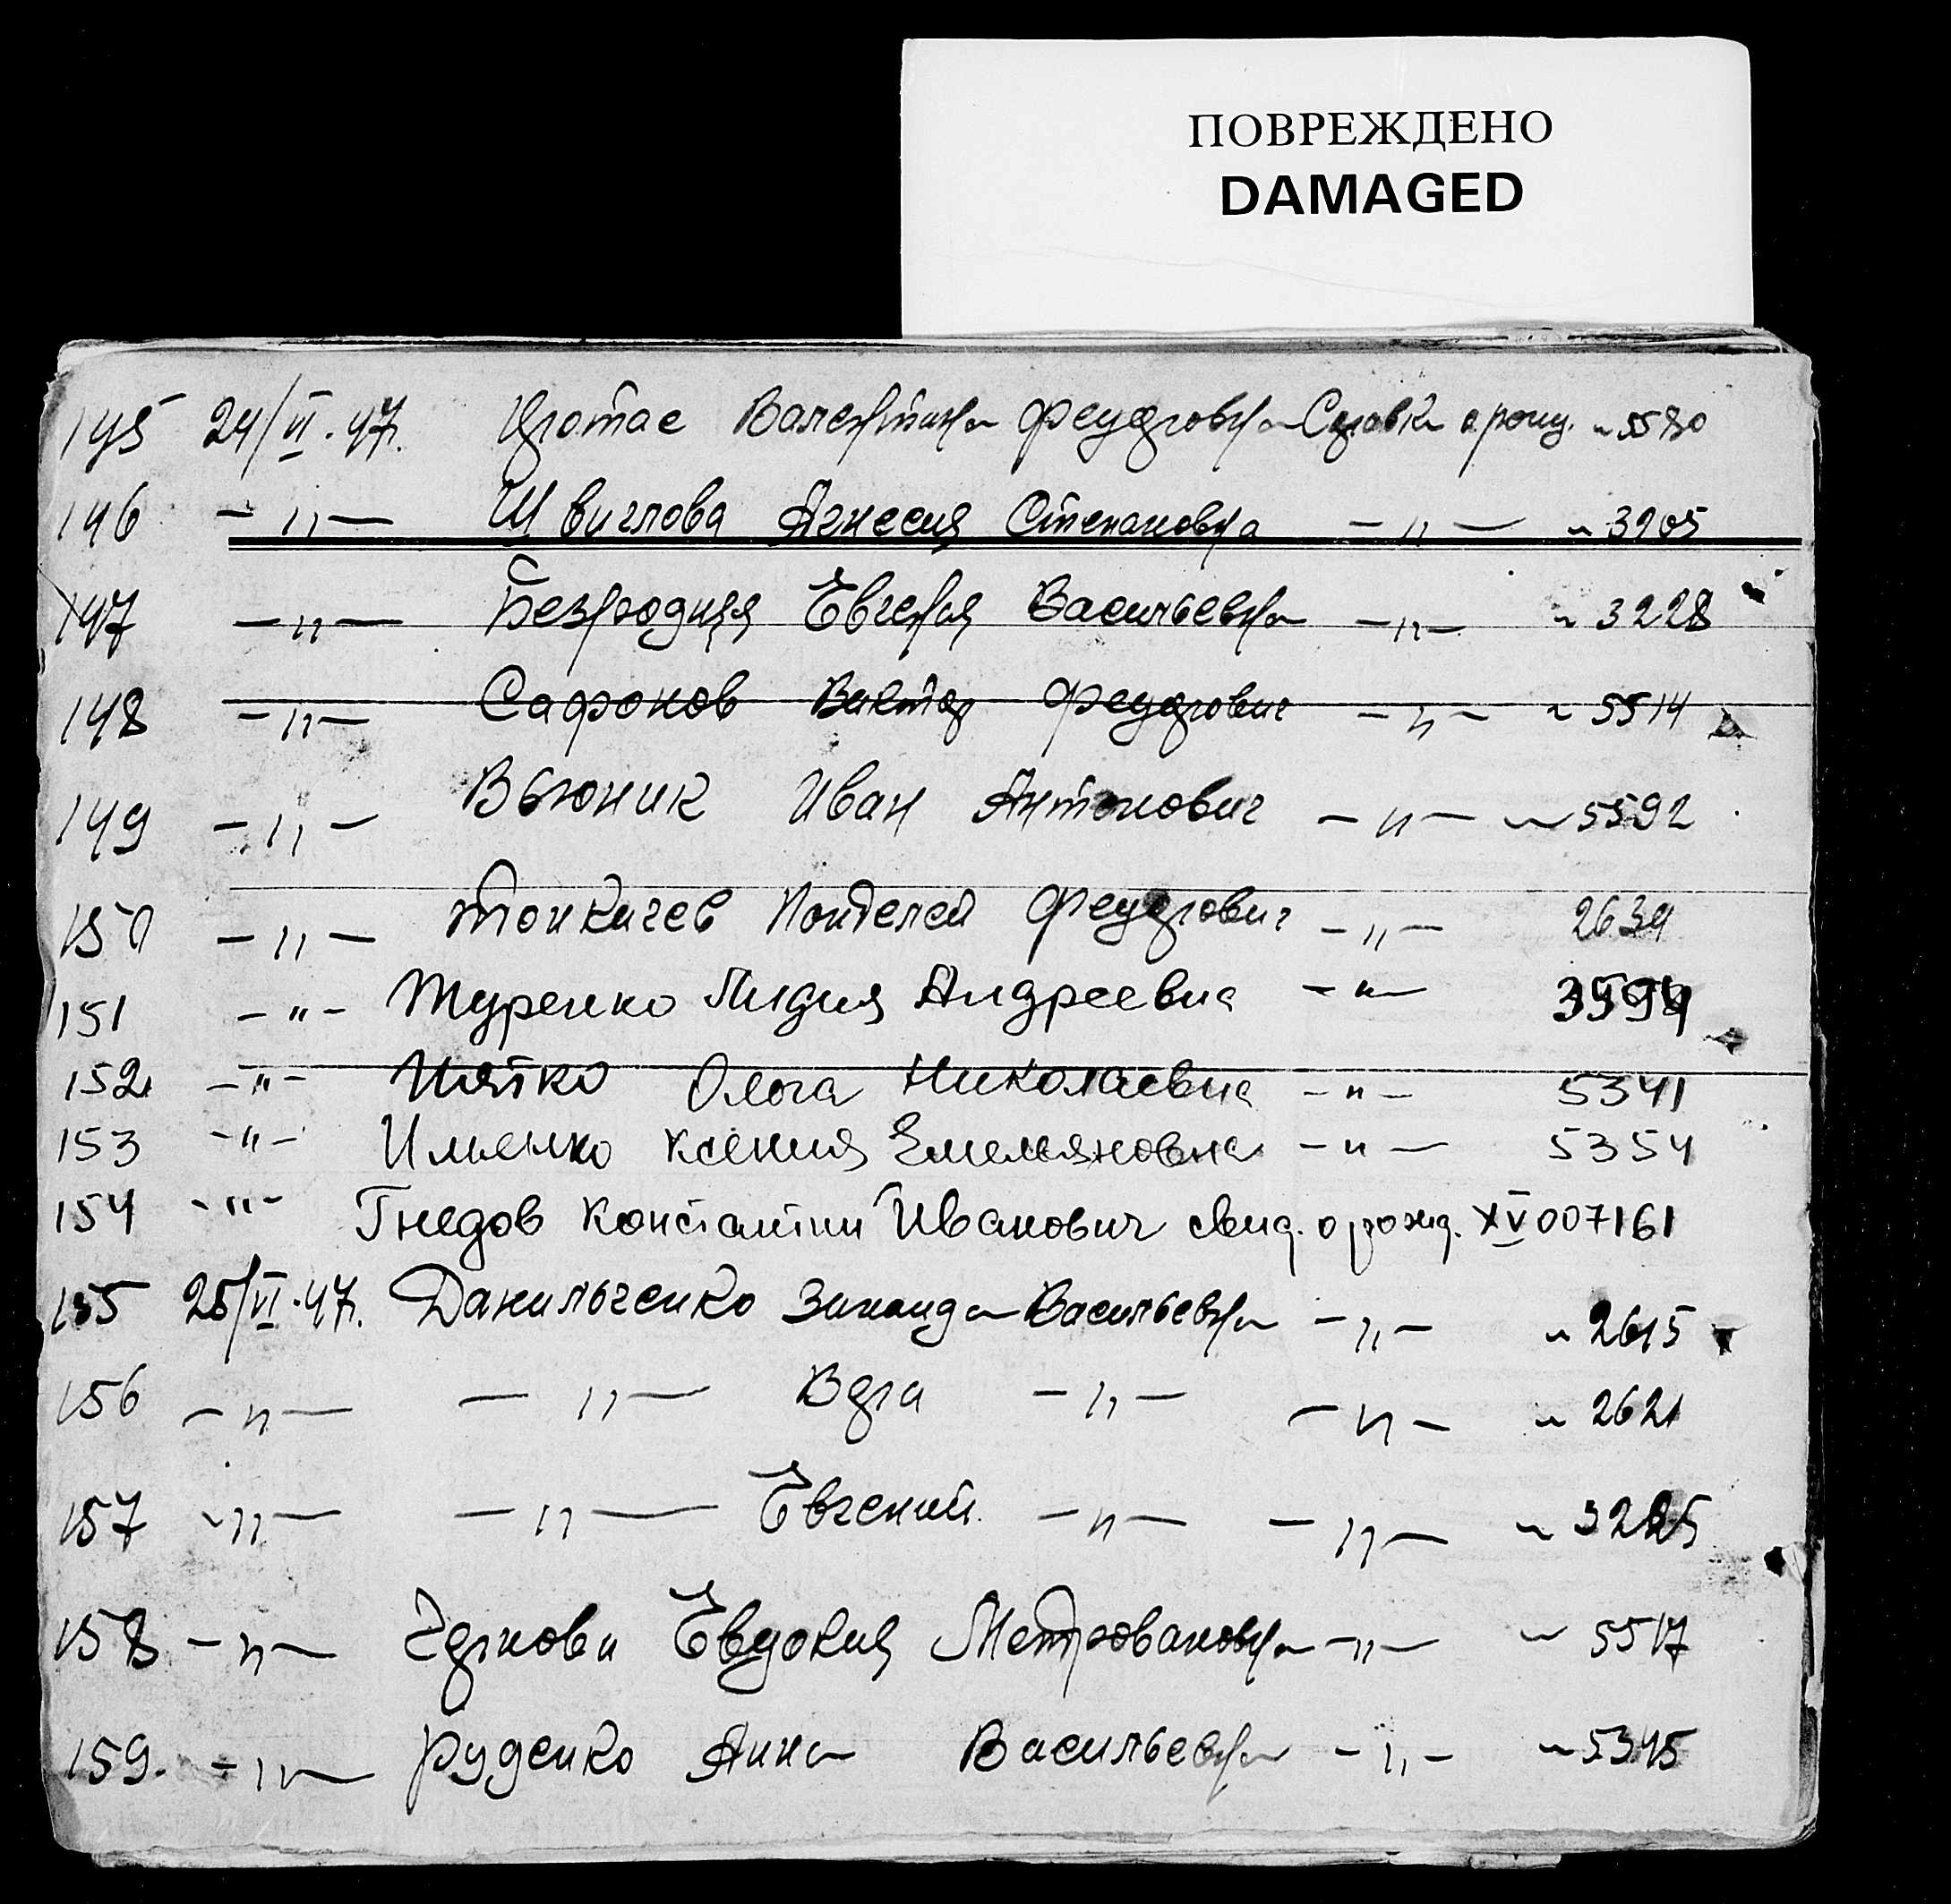 ПОВРЕЖДЕНО
DAMAGED
145 24/VI.47. Валентина Федоровна Справка о рожд. ~ 5580
146 -„- Швиглова Агнесия Степановна -„- ~ 3905
147 -„- Безродняя Евгения Васильевна -„- ~ 3228
148 -„- Сафонов Виктор Федорович -„- ~ 5514
149 -„- Вьюник Иван Антонович -„- ~ 5592
150 -„- Пантелей Федорович -„- 2639
151 -„- Журенко Лидия Андреевна -„- 3594
152 -„- Ольга Николаевна -„- 5341
153 -„- Ильенко Ксения Емельяновна -„- 5354
154 -„- Гнедов Константин Иванович свид. о рожд. XV 007161
155 25/VI.47. Данильченко Зинаида Васильевна -„- ~ 2615
156 -„- -„- Вера -„- -„- ~ 2621
157 -„- -„- Евгений -„- -„- ~ 3225
158 -„- Евдокия Метровановна -„- ~ 5517
159. -„- Руденко Анна Васильевна -„- ~ 5345